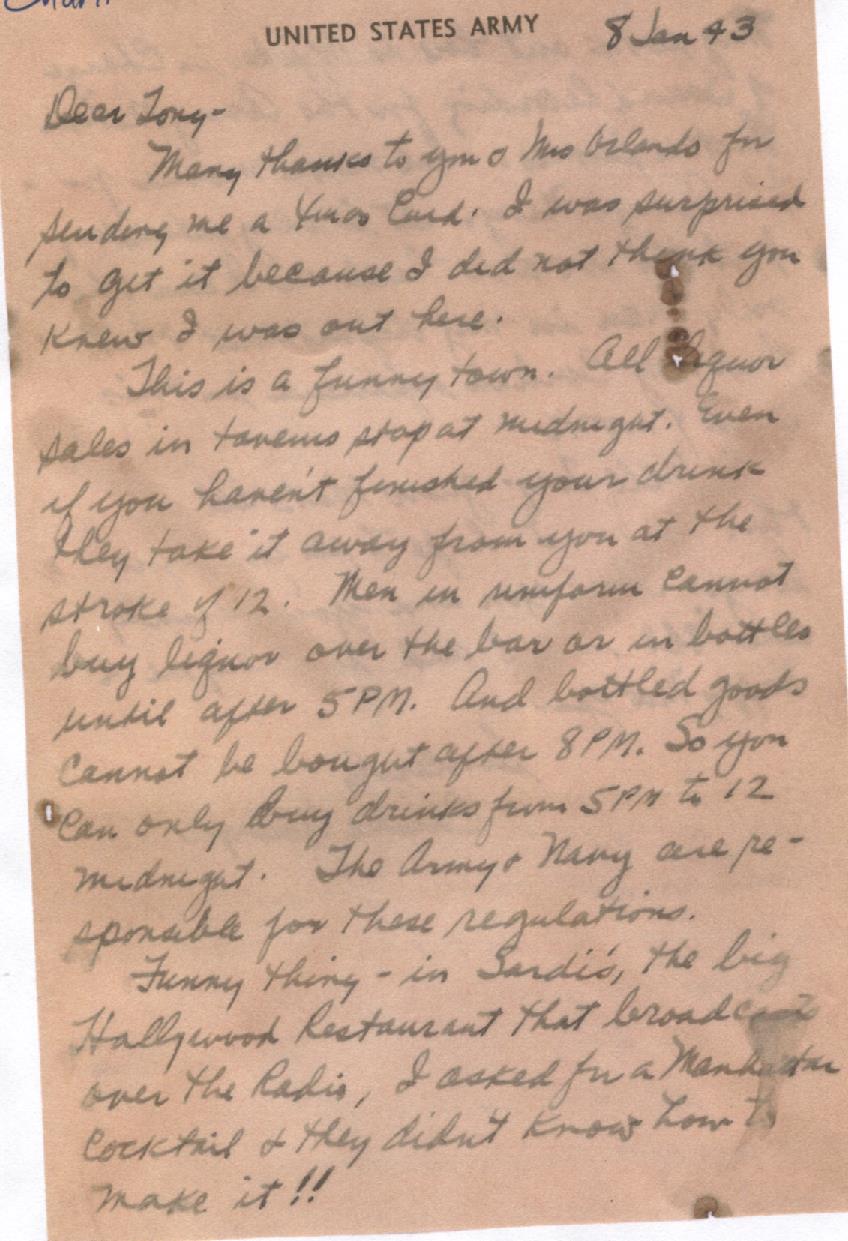 UNITED STATES ARMY
8 Jan 43
Dear Tony-
Many thanks to you & Mrs Orlando for
sending me a Xmas Card. I was surprised
to get it because I did not think you
knew I was out here.
This is a funny town. All liquor
sales in taverns stop at midnight. Even
if you haven't finished your drink
they take it away from you at the
stroke of 12. Men in uniform cannot
buy liquor over the bar or in bottles
until after 5PM. And bottled goods
cannot be bought after 8PM. So you
can only buy drinks from 5PM to 12
midnight. The Army & Navy are re-
sponsible for these regulations.
Funny thing - in Sardi's, the big
Hollywood Restaurant that broadcasts
over the Radio, I asked for a Manhattan
Cocktail & they didn't know how to
make it!!